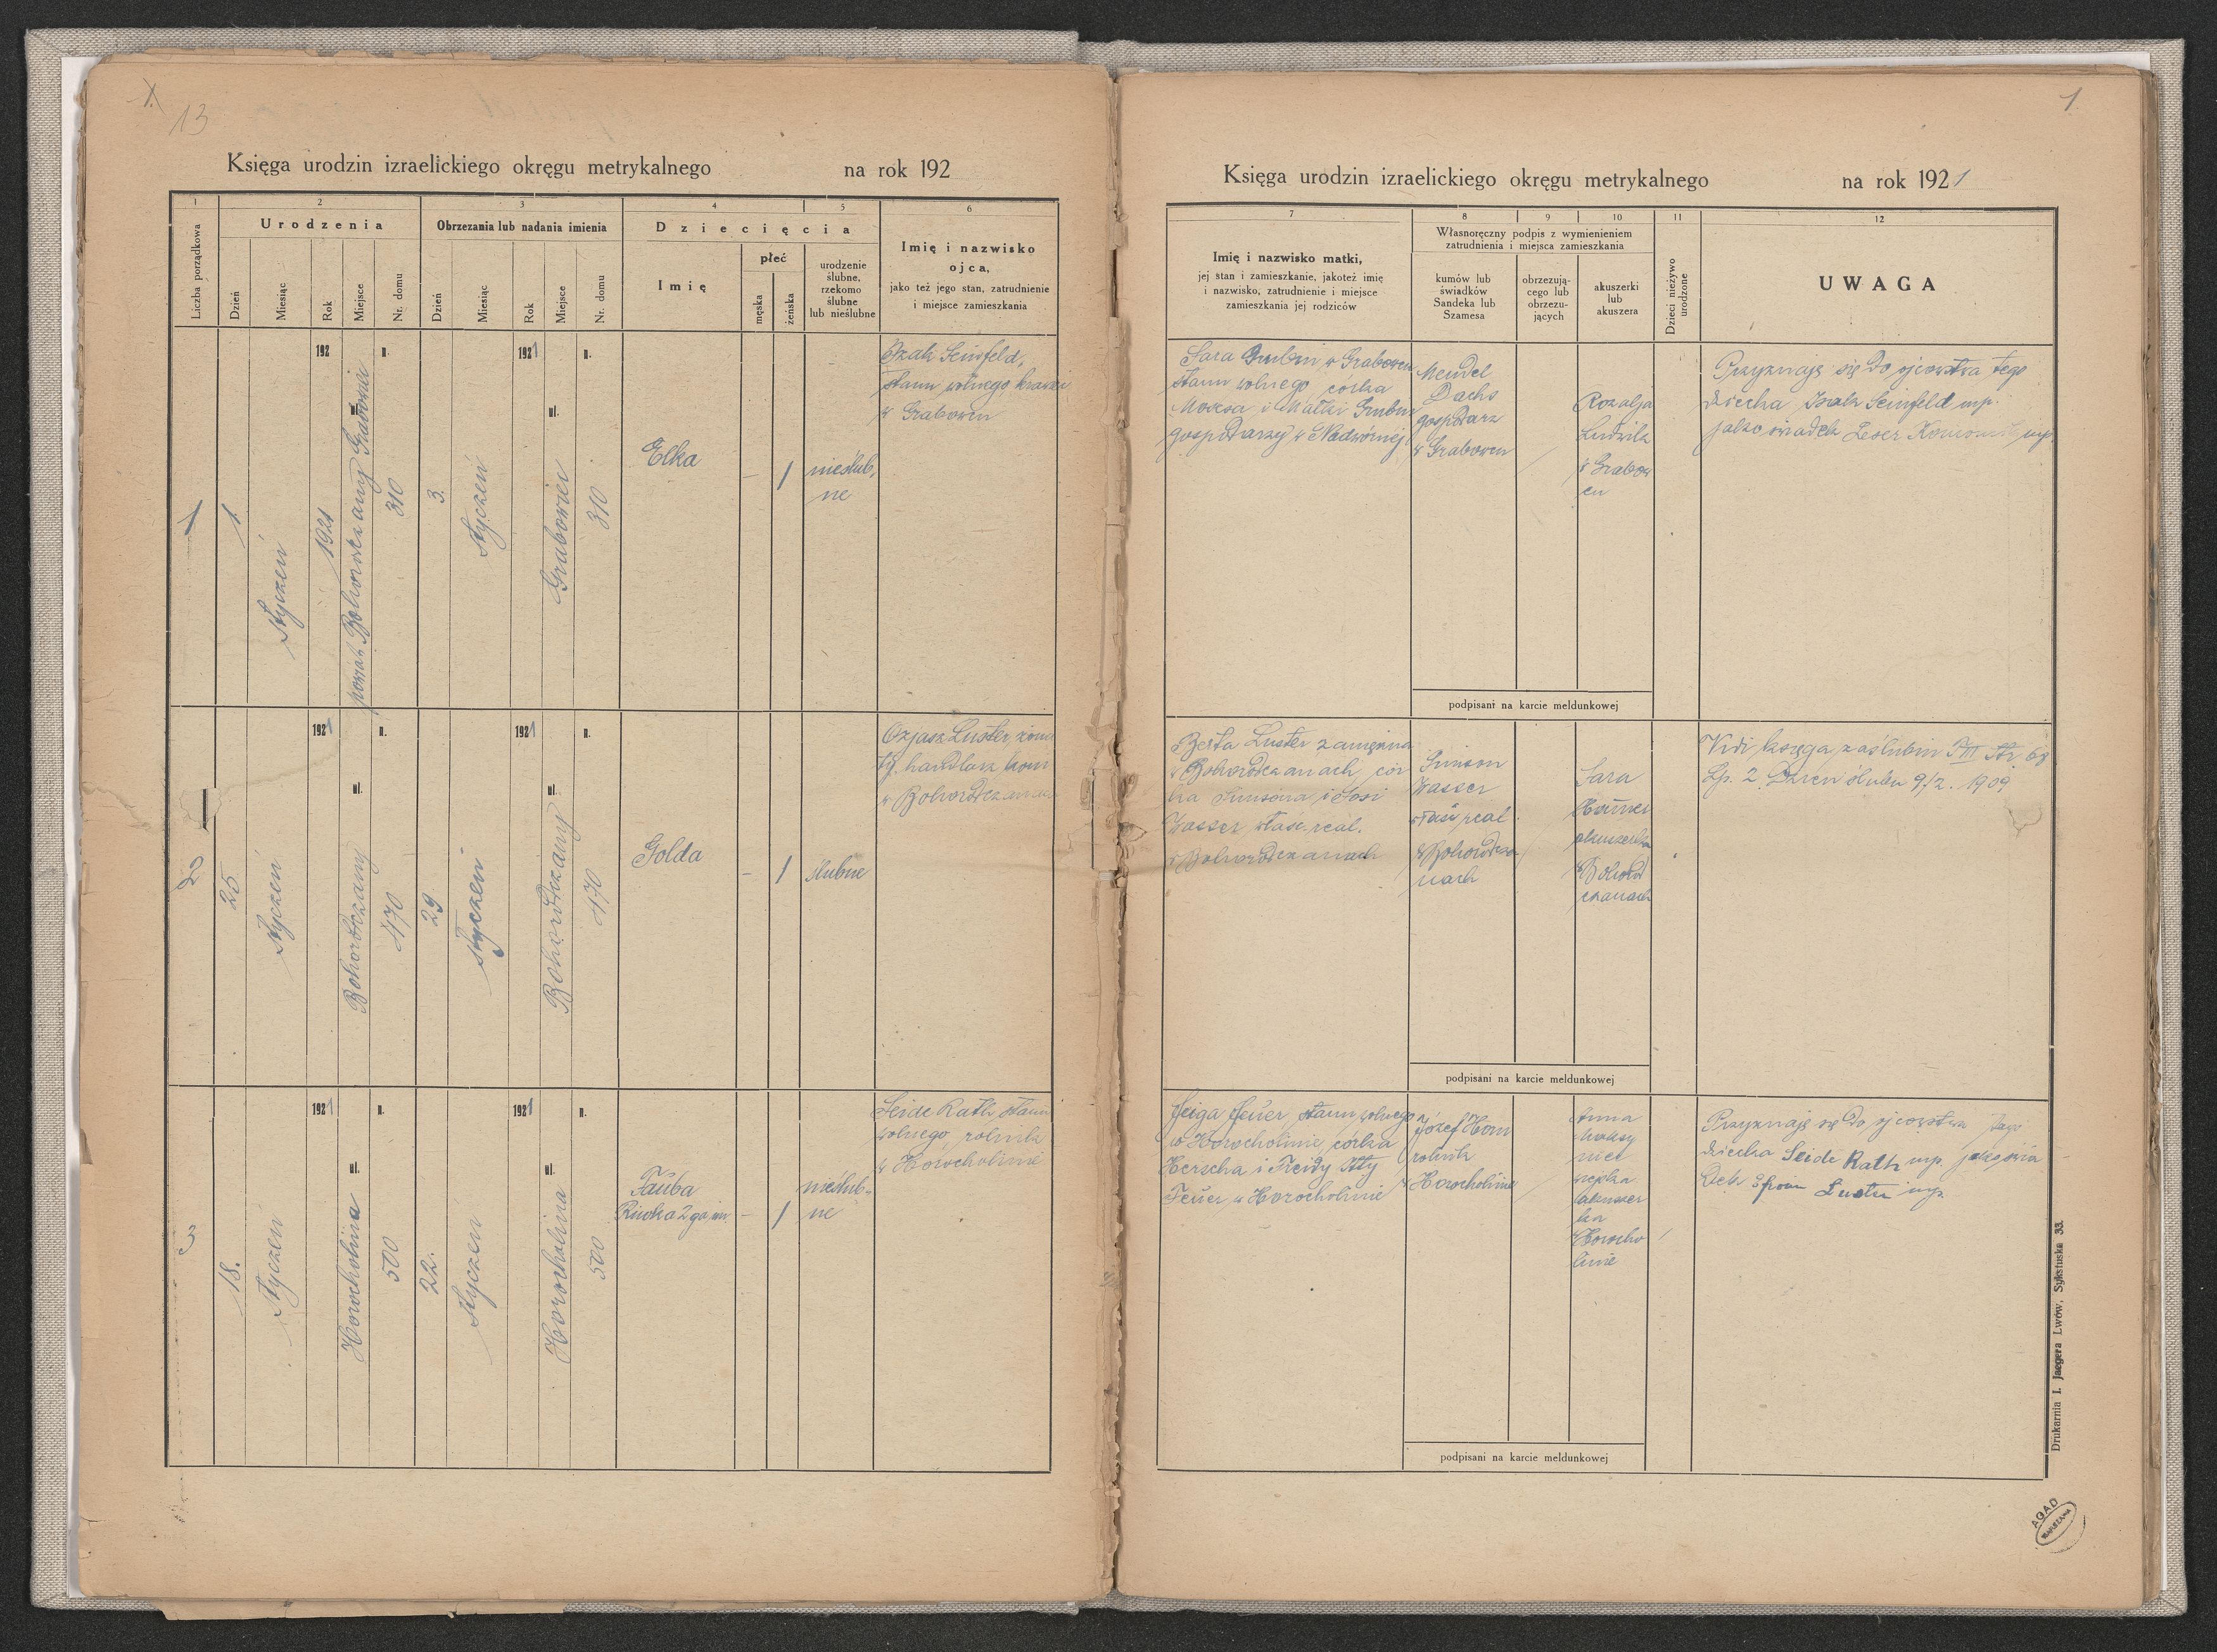 13
Księga urodzin izraelickiego okręgu metrykalnego na rok 192
1 2 3 4 5 6
Liczba porządkowa
Urodzenia
Obrzezania lub nadania imienia
Dziecięcia
Imię i nazwisko
ojca,
jako też jego stan, zatrudnienie
i miejsce zamieszkania
Dzień
Miesiąc
Rok
Miejsce
Nr. domu
Dzień
Miesiąc
Rok
Miejsce
Nr. domu
Imię
płeć
męska
żeńska
urodzenie
ślubne,
rzekomo
ślubne
lub nieślubne
1
1.
Styczeń
192
1921
powiat Bohorodczany Grabowiec
310
3.
Styczeń
1921
Grabowiec
310
Elka
–
1
nieślub,
ne
Izak Seinfeld,
stanu wolnego, krawiec
w Grabowcu
2
25
Styczeń
1921
Bohorodczany
470
29
Styczeń
1921
Bohorodczany
470
Golda
–
1
ślubne
Ozjasz Luster, żona
ty, handlarz koni
w Bohorodczanach
3
18.
Styczeń
1921
Horocholina
500
22.
Styczeń
1921
Horocholina
500
Tauba
Riwka 2ga im.
–
1
nieślub-
ne
Seide Rath stanu
wolnego, rolnik
w Horocholinie
1
Księga urodzin izraelickiego okręgu metrykalnego na rok 1921
7 8 9 10 11 12
Imię i nazwisko matki,
jej stan i zamieszkanie, jakoteż imię
i nazwisko, zatrudnienie i miejsce
zamieszkania jej rodziców
Własnoręczny podpis z wymienieniem
zatrudnienia i miejsca zamieszkania
kumów lub
świadków
Sandeka lub
Szamesa
obrzezują-
cego lub
obrzezu-
jących
akuszerki
lub
akuszera
Dzieci nieżywo
urodzone
UWAGA
Sara w Grabowcu
stanu wolnego, córka
Mozesa i Małki
gospodarzy w Nadwórnej
Mendel
Dachs
gospodarz
w Grabowcu
Rozalja
Ludwik
w Grabow
cu
Przyznaję się do ojcowstwa tego
dziecka Izak Seinfeld mp.
jako świadek Leser mp.
podpisani na karcie meldunkowej
Berta Luster zamężna
w Bohorodczanach, cór
ka Simsona i Sosi
Wasser właśc. real.
w Bohorodczanach
Simson
Wasser
właśc real.
w Bohorodcza
nach
Sara
akuszerka
w Bohorod
czanach
Vidi księga zaślubin T III str. 68
Lp. 2. Dzień ślubu 9/2. 1909
podpisani na karcie meldunkowej
Feiga Feuer, stanu wolnego
w Horocholinie, córka
Herscha i Freidy Itty
Feuer w Horocholinie
Józef Horn
rolnik
w Horocholinie
Anna
akuszer
ka
w Horocho
linie
Przyznaję się do ojcowstwa tego
dziecka Seide Rath mp. jako świa
dek Efroim Luster mp.
podpisani na karcie meldunkowej
Drukarnia I. Jaegera Lwów, Sykstuska 33.
AGAD
WARSZAWA